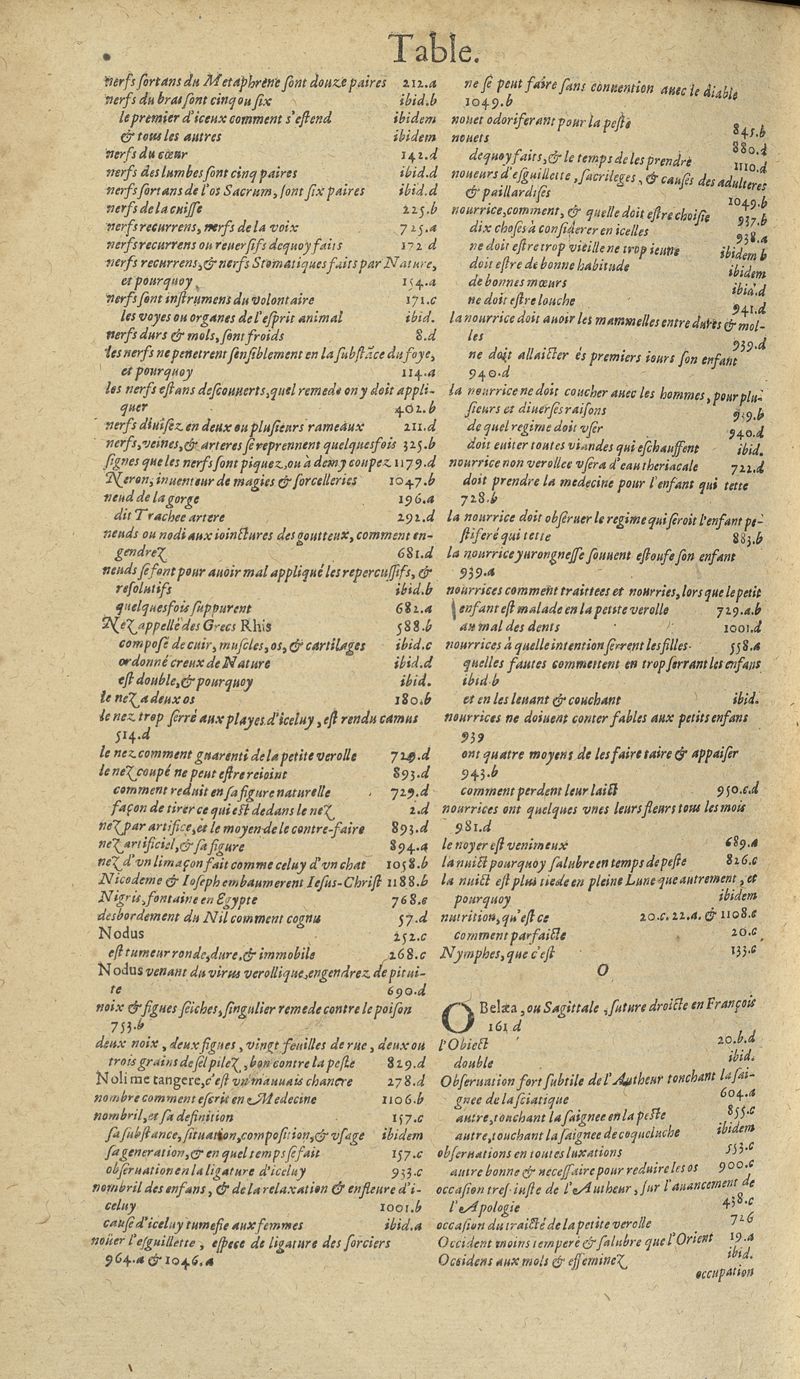 Table.
nerfs ſortans du Metaphrene ſont douze paires 212.a
nerfs du bras ſont cinq ou ſix ibid.b
le premier d'iceux comment s'eſtend ibidem
& tous les autres ibidem
nerfs du cœur 142.d
nerfs des lumbes ſont cinq paires ibid.d
nerfs ſortans de l'os Sacrum, ſont ſix paires ibid.d
nerfs de la cuiſſe 225.b
nerfs recurrens, nerfs de la voix 725.a
nerfs recurrens ou reuerſifs dequoy faits 172 d
nerfs recurrens, & nerfs Stomatiques faits par Nature,
et pourquoy 154.a
nerfs ſont inſtrumens du volontaire 171.c
les voyes ou organes de l'eſprit animal ibid.
nerfs durs & mols, ſont froids 8.d
les nerfs ne penetrent ſenſiblement en la ſubſtãce du foye,
et pourquoy 114.a
les nerfs eſtans deſcouuerts, quel remede on y doit appli-
quer 402.b
nerfs diuiſez en deux ou pluſieurs rameaux 211.d
nerfs, veines, & arteres ſe reprennent quelquesfois 325.b
ſignes que les nerfs ſont piquez, ou à demy coupez 1179.d
Neron, inuenteur de magies & ſorcelleries 1047.b
neud de la gorge 196.a
dit Trachee artere 292.d
neuds ou nodi aux ioinctures des goutteux, comment en-
gendrez 681.d
neuds ſe font pour auoir mal appliqué les repercuſſifs, &
reſolutifs ibid.b
quelquesfois ſuppurent 682.a
Nez appellé des Grecs Rhis 588.b
compoſé de cuir, muſcles, os, & cartilages ibid.c
ordonné creux de Nature ibid.d
eſt double, & pourquoy ibid.
le nez a deux os 180.b
le nez trop ſerré aux playes d'iceluy, eſt rendu camus
514.d
le nez comment guarenti de la petite verolle 729.d
le nez coupé ne peut eſtre reioint 893.d
comment reduit en ſa figure naturelle 729.d
façon de tirer ce qui eſt dedans le nez 2.d
nez par artifice, et le moyen de le contre-faire 893.d
nez artificiel, & ſa figure 894.a
nez d'vn limaçon fait comme celuy d'vn chat 1058.b
Nicodeme & Ioſeph embaumerent Ieſus-Chriſt 1188.b
Nigris, fontaine en Egypte 768.e
desbordement du Nil comment cognu 57.d
Nodus 252.c
eſt tumeur ronde, dure, & immobile 268.c
Nodus venant du virus verollique, engendrez de pitui-
te 690.d
noix & figues ſeiches, ſingulier remede contre le poiſon
753.b
deux noix, deux figues, vingt feuilles de rue, deux ou
trois grains de ſel pilez, bon contre la peſte 829.d
Noli me tangere, c'eſt vn mauuais chancre 278.d
nombre comment eſcrit en Medecine 1106.b
nombril, et ſa definition 157.c
ſa ſubſtance, ſituation, compoſition, & vſage ibidem
ſa generation, & en quel temps ſe fait 157.c
obſeruation en la ligature d'iceluy 933.c
nombril des enfans, & de la relaxation & enfleure d'i-
celuy 1001.b
cauſe d'iceluy tumefie aux femmes ibid.a
nouer l'eſguillette, eſpece de ligature des ſorciers
964.a & 1046.a
ne ſe peut faire ſans conuention auec le diable
1049.b
nouet odoriferant pour la peſte 845.b
nouets 880.d
dequoy faits, & le temps de les prendre 1110.d
noueurs d'eſguillette, ſacrileges, & cauſes des adulteres
& paillardiſes 1049.b
nourrice, comment, & quelle doit eſtre choiſie 937.b
dix choſes à conſiderer en icelles 938.a
ne doit eſtre trop vieille ne trop ieune ibidem b
doit eſtre de bonne habitude ibidem
de bonnes mœurs ibid.d
ne doit eſtre louche 941.d
la nourrice doit auoir les mammelles entre dures & mol-
les 939.d
ne doit allaicter és premiers iours ſon enfant
940.d
la nourrice ne doit coucher auec les hommes, pour plu-
ſieurs et diuerſes raiſons 939.b
de quel regime doit vſer 940.d
doit euiter toutes viandes qui eſchauffent ibid.
nourrice non verollee vſera d'eau theriacale 722.d
doit prendre la medecine pour l'enfant qui tette
728.b
la nourrice doit obſeruer le regime qui ſeroit l'enfant pe-
ſtiferé qui tette 883.b
la nourrice yurongneſſe ſouuent eſtoufe ſon enfant
939.a
nourrices comment traittees et nourries, lors que le petit
enfant eſt malade en la petite verolle 729.a.b
au mal des dents 1001.d
nourrices à quelle intention ſerrent les filles 558.a
quelles fautes commettent en trop ſerrant les enfans
ibid.b
et en les leuant & couchant ibid.
nourrices ne doiuent conter fables aux petits enfans
939
ont quatre moyens de les faire taire & appaiſer
943.b
comment perdent leur laict 950.c.d
nourrices ont quelques vnes leurs fleurs tous les mois
981.d
le noyer eſt venimeux 689.a
la nuict pourquoy ſalubre en temps de peſte 826.c
la nuict eſt plus tiede en pleine Lune que autrement, et
pourquoy ibidem
nutrition, qu'eſt ce 20.c. 22.a. & 1108.e
comment parfaicte 20.c
Nymphes, que c'eſt 133.c
O
OBelæa, ou Sagittale, ſuture droicte en François
161.d
l'Obiect 20.b.d
double ibid.
Obſeruation fort ſubtile de l'Autheur touchant la ſai-
gnee de la ſciatique 604.a
autre, touchant la ſaignee en la peſte 855.c
autre, touchant la ſaignee de coqueluche ibidem
obſeruations en toutes luxations 553.c
autre bonne & neceſſaire pour reduire les os 900.c
occaſion treſ-iuſte de l'Autheur, ſur l'auancement de
l'Apologie 438.c
occaſion du traicté de la petite verolle 726
Occident moins temperé & ſalubre que l'Orient 19.a
Occidens aux mols & effeminez ibid.
occupation